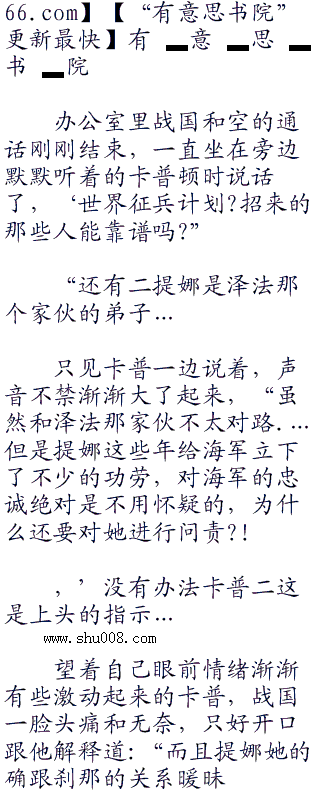 66.com】【“有意思书院”
更新最快】有 ▂意 ▂思 ▂
书 ▂院
办公室里战国和空的通
话刚刚结束，一直坐在旁边
默默听着的卡普顿时说话
了，‘世界征兵计划?招来的
那些人能靠谱吗?”
“还有二提娜是泽法那
个家伙的弟子…
只见卡普一边说着，声
音不禁渐渐大了起来，“虽
然和泽法那家伙不太对路....
但是提娜这些年给海军立下
了不少的功劳，对海军的忠
诚绝对是不用怀疑的，为什
么还要对她进行问责?!
，’没有办法卡普二这
是上头的指示…
www.shu008.com
望着自己眼前情绪渐渐
有些激动起来的卡普，战国
一脸头痛和无奈，只好开口
跟他解释道：“而且提娜她的
确跟刹那的关系暧昧